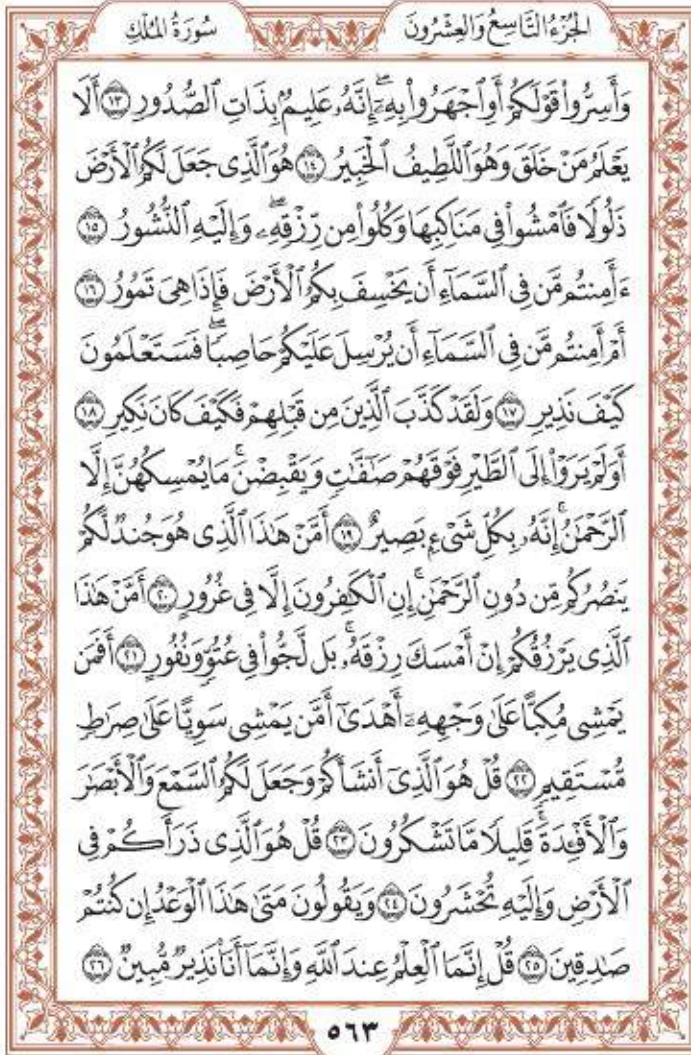 سُورَةُ المُلْكِ الجُزْءُ التَّاسِعُ وَالعِشْرُونَ
وَأَسِرُّوا۟ قَوْلَكُمْ أَوِ ٱجْهَرُوا۟ بِهِۦٓ ۖ إِنَّهُۥ عَلِيمٌۢ بِذَاتِ ٱلصُّدُورِ ١٣ أَلَا
يَعْلَمُ مَنْ خَلَقَ وَهُوَ ٱللَّطِيفُ ٱلْخَبِيرُ ١٤ هُوَ ٱلَّذِى جَعَلَ لَكُمُ ٱلْأَرْضَ
ذَلُولًا فَٱمْشُوا۟ فِى مَنَاكِبِهَا وَكُلُوا۟ مِن رِّزْقِهِۦ ۖ وَإِلَيْهِ ٱلنُّشُورُ ١٥
ءَأَمِنتُم مَّن فِى ٱلسَّمَآءِ أَن يَخْسِفَ بِكُمُ ٱلْأَرْضَ فَإِذَا هِىَ تَمُورُ ١٦
أَمْ أَمِنتُم مَّن فِى ٱلسَّمَآءِ أَن يُرْسِلَ عَلَيْكُمْ حَاصِبًا ۖ فَسَتَعْلَمُونَ
كَيْفَ نَذِيرِ ١٧ وَلَقَدْ كَذَّبَ ٱلَّذِينَ مِن قَبْلِهِمْ فَكَيْفَ كَانَ نَكِيرِ ١٨
أَوَلَمْ يَرَوْا۟ إِلَى ٱلطَّيْرِ فَوْقَهُمْ صَٰٓفَّٰتٍ وَيَقْبِضْنَ ۚ مَا يُمْسِكُهُنَّ إِلَّا
ٱلرَّحْمَٰنُ ۚ إِنَّهُۥ بِكُلِّ شَىْءٍۭ بَصِيرٌ ١٩ أَمَّنْ هَٰذَا ٱلَّذِى هُوَ جُندٌ لَّكُمْ
يَنصُرُكُم مِّن دُونِ ٱلرَّحْمَٰنِ ۚ إِنِ ٱلْكَٰفِرُونَ إِلَّا فِى غُرُورٍ ٢٠ أَمَّنْ هَٰذَا
ٱلَّذِى يَرْزُقُكُمْ إِنْ أَمْسَكَ رِزْقَهُۥ ۚ بَل لَّجُّوا۟ فِى عُتُوٍّ وَنُفُورٍ ٢١ أَفَمَن
يَمْشِى مُكِبًّا عَلَىٰ وَجْهِهِۦٓ أَهْدَىٰٓ أَمَّن يَمْشِى سَوِيًّا عَلَىٰ صِرَٰطٍ
مُّسْتَقِيمٍ ٢٢ قُلْ هُوَ ٱلَّذِىٓ أَنشَأَكُمْ وَجَعَلَ لَكُمُ ٱلسَّمْعَ وَٱلْأَبْصَٰرَ
وَٱلْأَفْـِٔدَةَ ۖ قَلِيلًا مَّا تَشْكُرُونَ ٢٣ قُلْ هُوَ ٱلَّذِى ذَرَأَكُمْ فِى
ٱلْأَرْضِ وَإِلَيْهِ تُحْشَرُونَ ٢٤ وَيَقُولُونَ مَتَىٰ هَٰذَا ٱلْوَعْدُ إِن كُنتُمْ
صَٰدِقِينَ ٢٥ قُلْ إِنَّمَا ٱلْعِلْمُ عِندَ ٱللَّهِ وَإِنَّمَآ أَنَا۠ نَذِيرٌ مُّبِينٌ ٢٦
٥٦٣